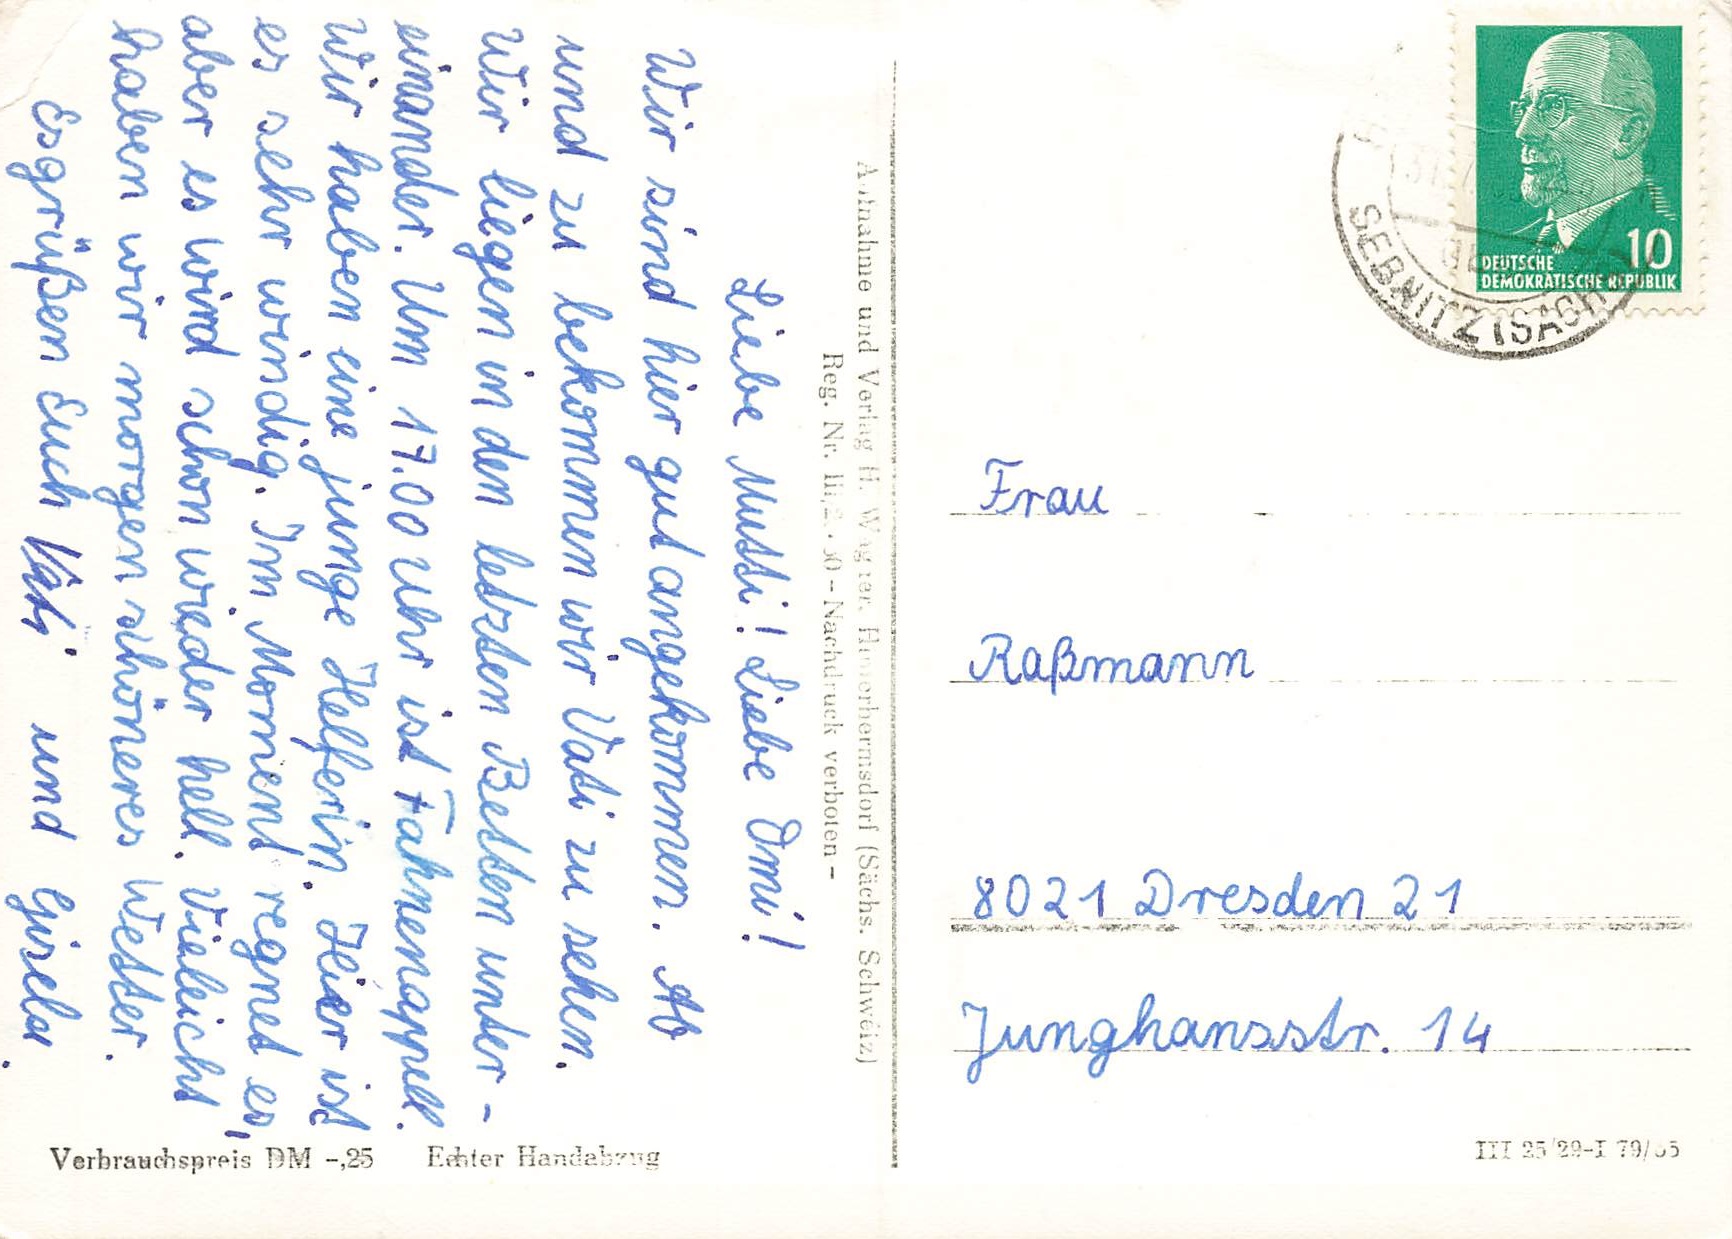 Liebe Mutti! Liebe Omi!
Wir sind hier gut angekommen. Ab
und zu bekommen wir Vati zu sehen.
Wir liegen in den letzten Betten unter-
einander. Um 17.00 Uhr ist Fahnenappell.
Wir haben eine junge Helferin. Hier ist
es sehr windig. Im Moment regnet es,
aber es wird schon wieder hell. Vieleicht
haben wir morgen schöneres Wetter.
Es grüßen Euch Vati und Gisela.
Aufnahme und Verlag H. Wagner, Hinterhermsdorf (Sächs. Schweiz)
Reg. Nr. - Nachdruck verboten -
Verbrauchspreis DM -,25 Echter Handabzug
10
DEUTSCHE
DEMOKRATISCHE REPUBLIK
SEBNITZ (SACHS
Frau
Raßmann
8021 Dresden 21
Junghansstr. 14
III 25/29-I 79/65